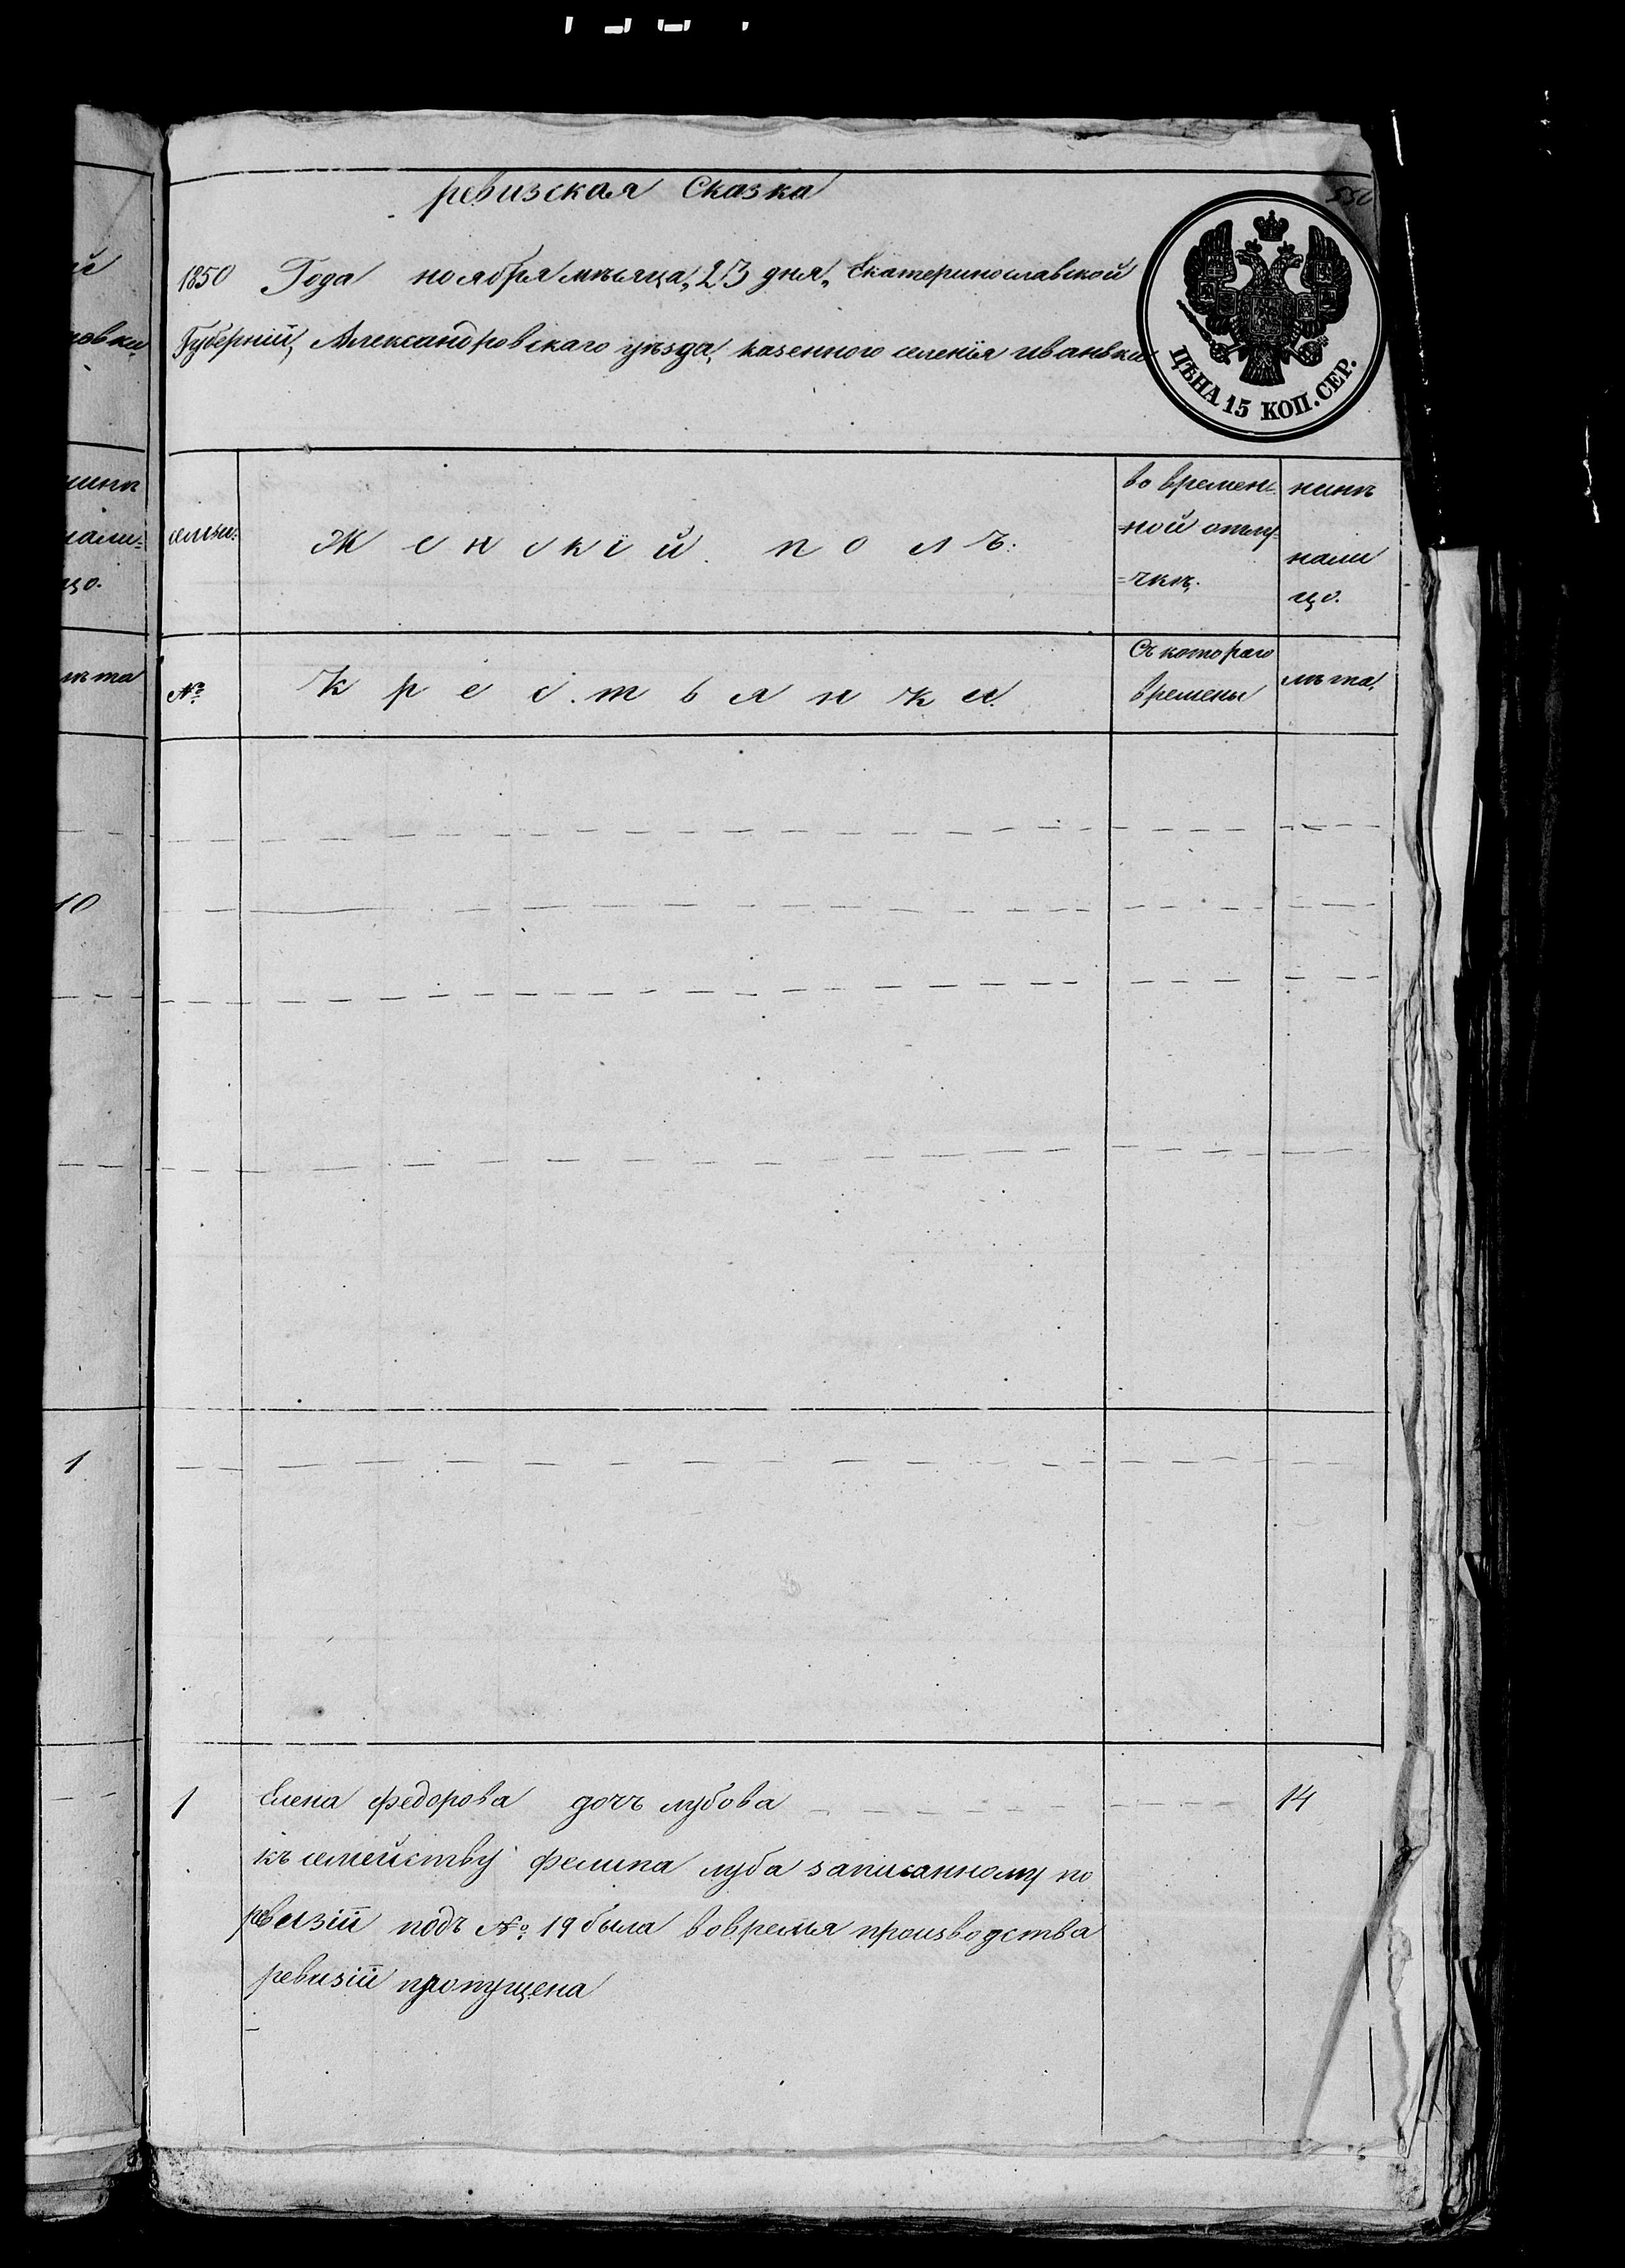 ревизская Сказка
1850 Года ноября мѣсяца, 23 дня, Екатеринославской
Губерній, Александровскаго уѣзда, казенного селенія иваньки
ЦѢНА 15 КОП. СЕР.
семьи:
Женскій полъ:
во времен:
ной отлу=
=чкѣ.
нинѣ
нали
цо.
№
Крестьянки
Съ котораго
времены
лѣта,
10
1
1 Елена федорова дочь лубова 14
къ семейству фелипа луба записанному по
ревизіи подъ № 19 была вовремя производства
ревизіи пропущена